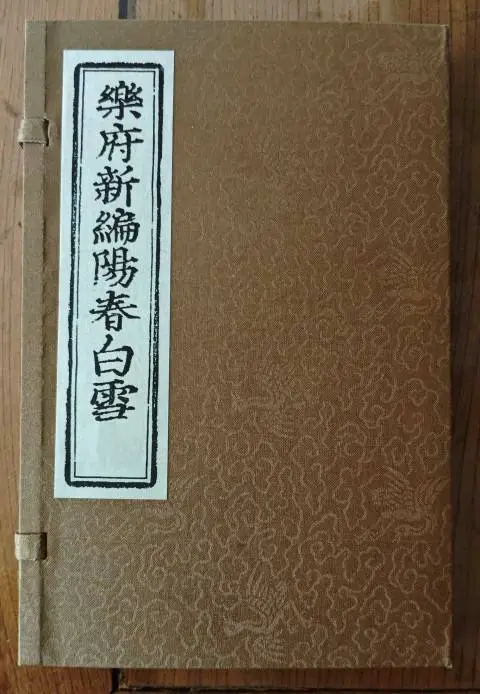 樂府新編陽春白雪